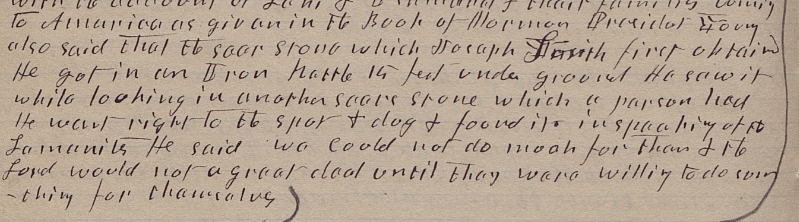 to America as given in the Book of Mormon President Young
also said that the seer stone which Joseph Smith first obtaind
He got in an Iron Kettle 15 feet under ground He saw it
while looking in another seers stone which a person had
He went right to the spot & dog & found it in speaking of the
Lamanites He said we could not do much for them & the
Lord would not a great deal until they were willing to do som
-thing for themselves